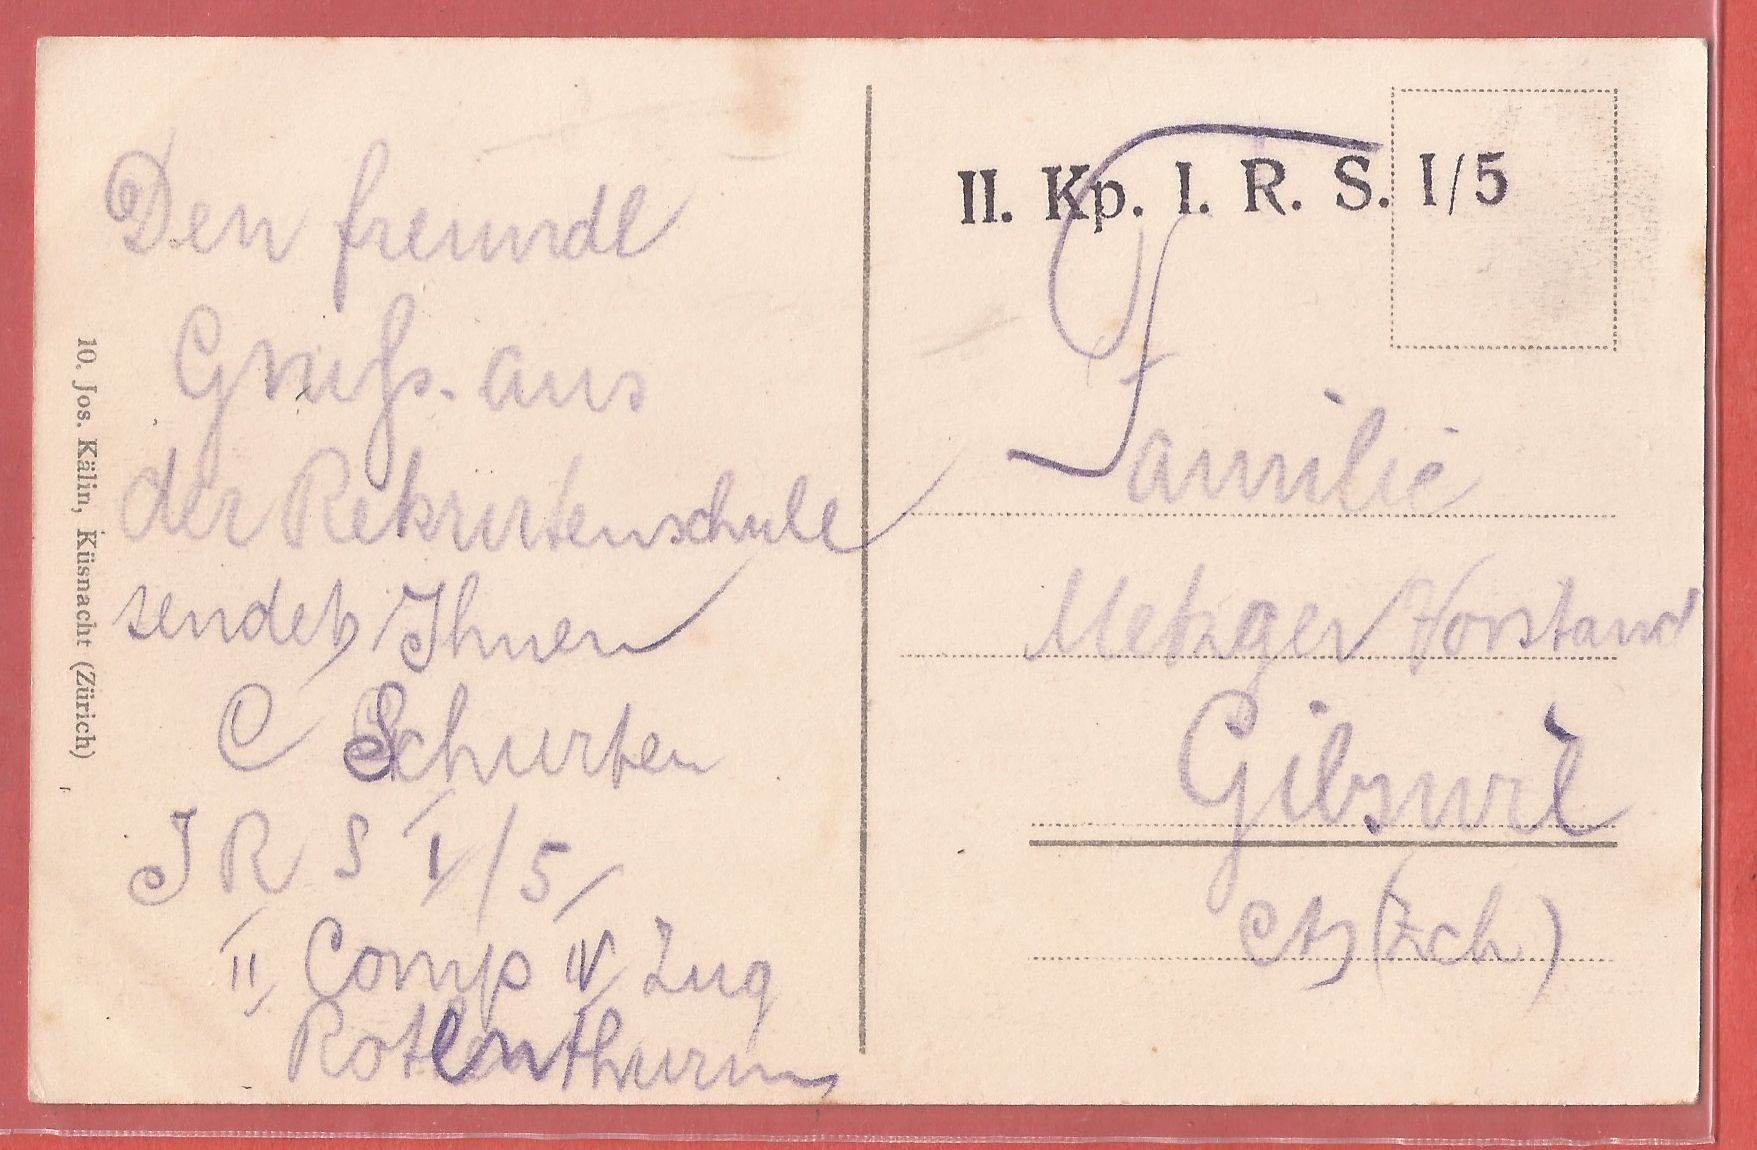 Den freundl
Gruß. aus
der Rekrutenschule
sendet Ihnen
C Schurter
J R S I/5
II Comp IV Zug
Rothenthurm
10. Jos. Kälin, Küsnacht (Zürich)
II. Kp. I. R. S. I/5
Familie
Metzger Vorstand
Gibswil
(Zch)